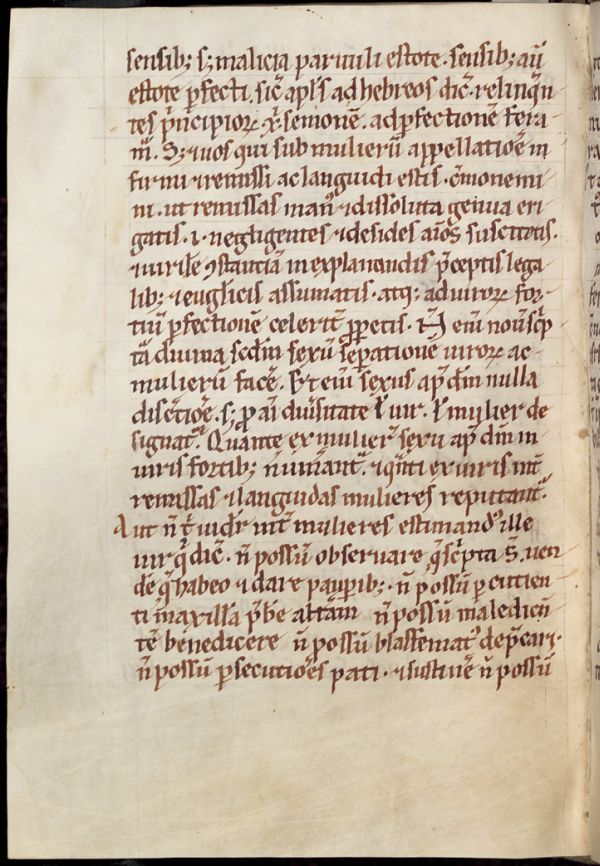 sensib; s; malicia parvuli estote. sensib; aū
estote pfecti. sic̄ apl's ad hebreos dic̄. relinqn̄
tes p̄ncipioꝝ x̄ sermonē. ad pfectionē fera
m̄. S; & vos qui sub mulierū appellatiōe in
firmi & remissi ac languidi estis. cōmonemi
ni. ut remissas man' & dissoluta genua eri
gatis. i. negligentes & desides aīos suscitetis.
& virilē ꝯstantiā in explanandis p̄ceptis lega
lib; & euglicis assumatis. atq; ad viroꝝ for
tiū pfectionē celerit̄ ppetis. eni novit sc̄p
tā divina scdm̄ sexū sepatione viroꝝ ac
mulierū facē. Et eni sexus ap̄ dm̄ nulla
disc̄tiōe. s; p ai divsitate ł vir. ł mulier de
signat̄. Quante ex mulier sexu ap̄ dm̄ in
viris fortib; n̄ num̄ant̄. & qn̄ti ex viris int̄
remissas & languidas mulieres reputant̄.
Aut n̄ t̄ vidr̄ int̄ mulieres estimand' ille
vir q̄ dic̄. n̄ possū observare q̄ sc̄pta s̄. ven
de q̄ habeo & da re paupib;. n̄ possū pcutien
ti maxillā p̄be altām n̄ possū maledicn̄
tē benedicere n̄ possū blasfemat' dep̄cari.
n̄ possū psecutiōes pati. & sustinē n̄ possū